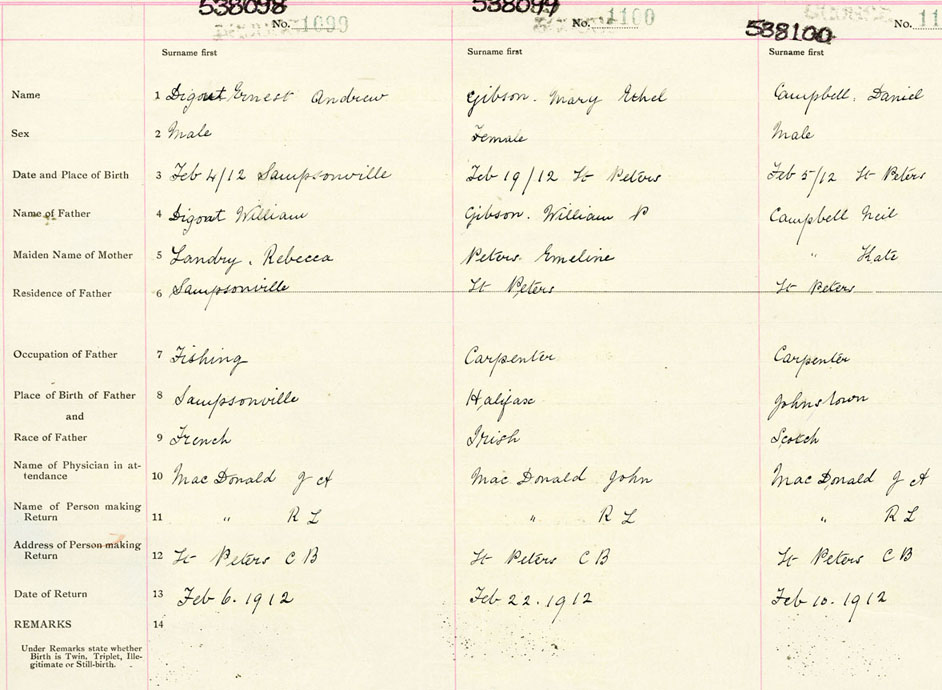 538098 538099
No. 1099 No. 1100 No. 11
538100
Surname first Surname first Surname first
Name 1 Digout Ernest Andrew Gibson. Mary Ethel Campbell, Daniel
Sex 2 Male Female Male
Date and Place of Birth 3 Feb 4/12 Sampsonville Feb 19/12 St Peters Feb 5/12 St Peters
Name of Father 4 Digout William Gibson. William P Campbell Neil
Maiden Name of Mother 5 Landry, Rebecca Peters Emeline " Kate
Residence of Father 6 Sampsonville St Peters St Peters
Occupation of Father 7 Fishing Carpenter Carpenter
Place of Birth of Father 8 Sampsonville Halifax Johnstown
and
Race of Father 9 French Irish Scotch
Name of Physician in at-
tendance 10 Mac Donald J A Mac Donald John Mac Donald J A
Name of Person making
Return 11 " R L " R L " R L
Address of Person making
Return 12 St Peters C B St Peters C B St Peters C B
Date of Return 13 Feb 6. 1912 Feb 22. 1912 Feb 10. 1912
REMARKS 14
Under Remarks state whether
Birth is Twin, Triplet, Ille-
gitimate or Still-birth.